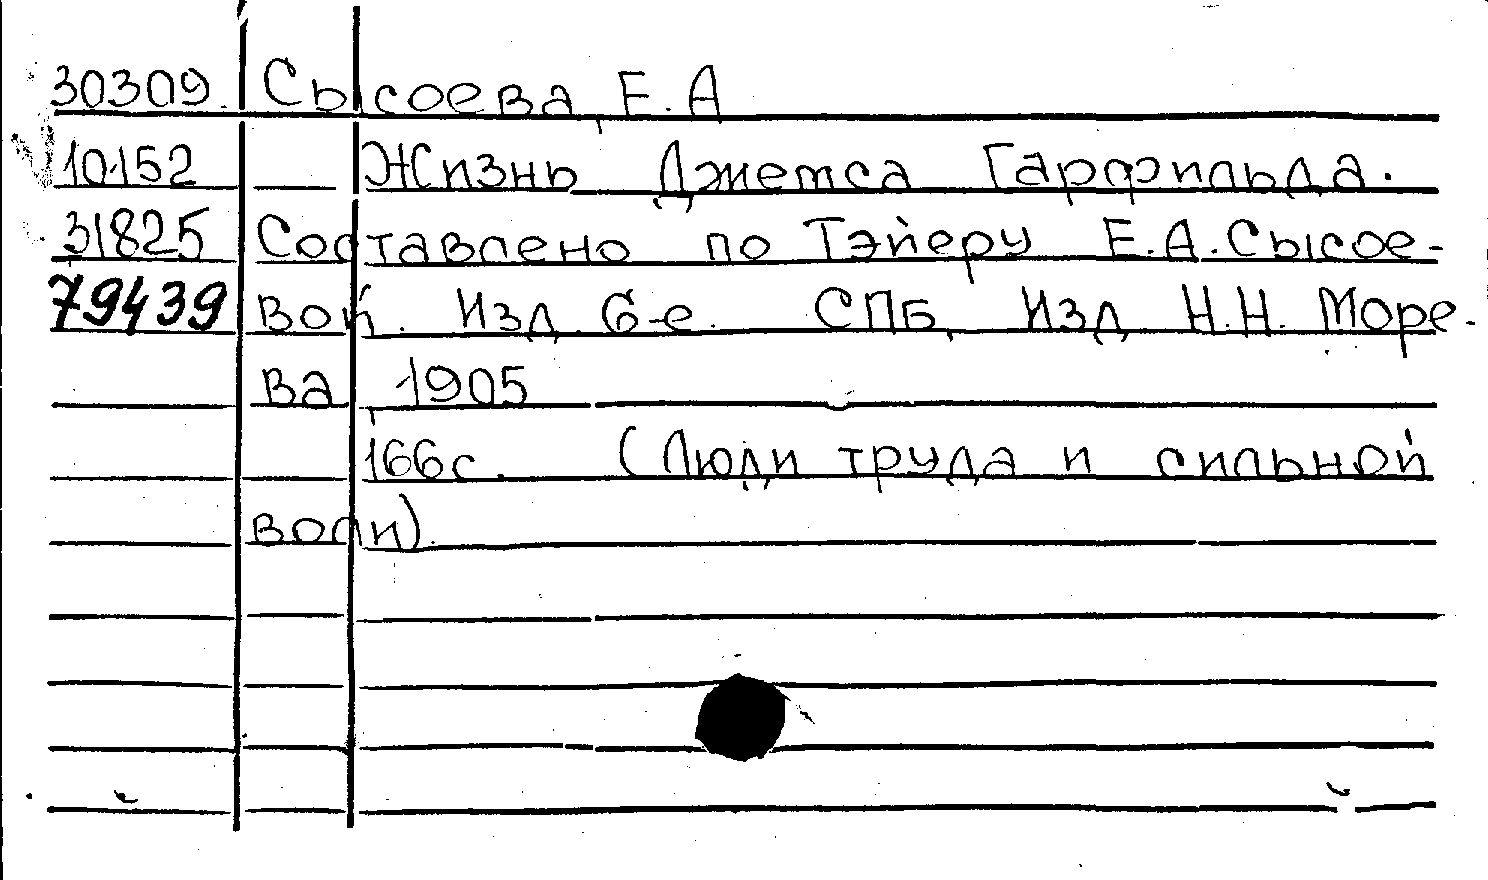 30309. Сысоева, Е.А
10152 Жизнь Джемса Гарфильда.
31825 Составлено по Тэйеру Е.А.Сысое-
79439 вой. Изд. 6-е. СПБ, Изд Н.Н. Море-
ва 1905
166с. (Люди труда и сильной
воли).